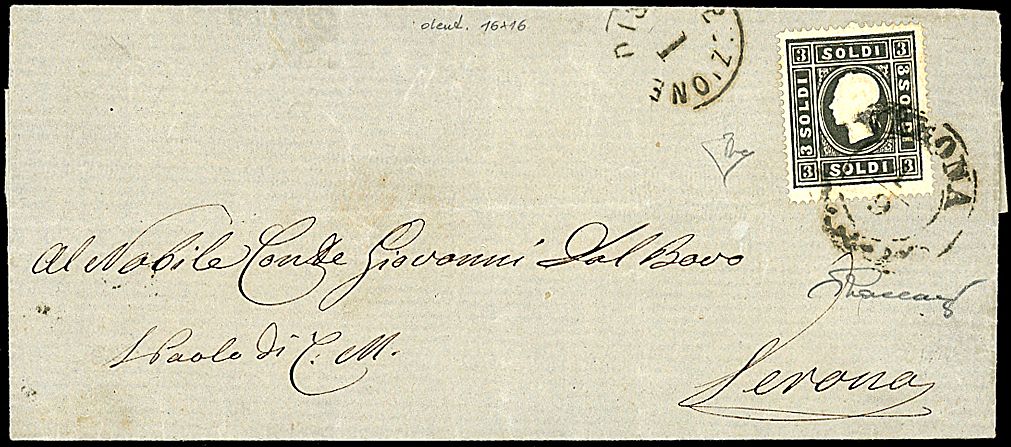 dent. 16x16
DIS Z'IONE
1
3 SOLDI 3
SOLDI
SOLDI
3 SOLDI 3
VERONA
9
Al Nobile Conte Giovanni Dal Bovo
S Paolo di C. M.
Verona